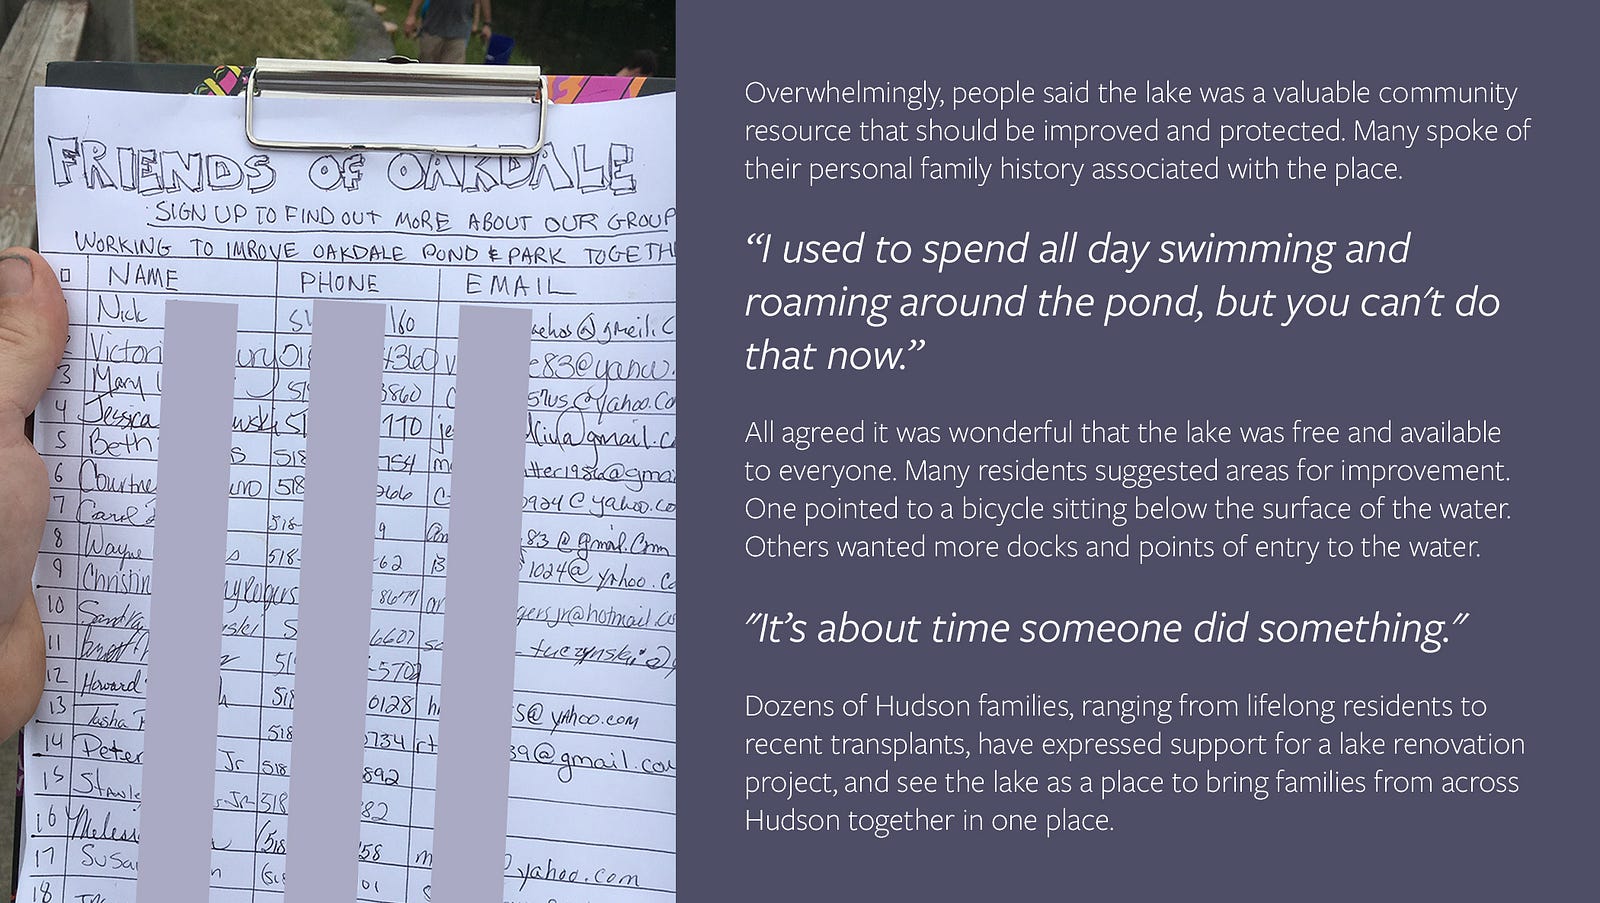 FRIENDS OF OAKDALE
SIGN UP TO FIND OUT MORE ABOUT OUR GROUP
WORKING TO IMROVE OAKDALE POND & PARK
NAME PHONE EMAIL
Nick 160 @gmeil.c
Victori 4360 e83@
3 Mary 3860 @yahoo.co
4 Jessica wski 51 770 je @gmail.c
5 Beth s 518 754 m @gma
6 Courtne 518 266 c 0924@yahoo.co
7 Carol 518- 9 83@gmail.com
8 Wayne s 518- 62 B 1024@yahoo.co
9 Christin 8674 @hotmail.co
10 nski 5 6607
11 51 -5702
12 Howard 518 0128 h 5@yahoo.com
13 Tasha 518 0734 rt 39@gmail.com
14 Peter Jr 518 892
15 Jr 518 82
16 Melissi (518 58 m @yahoo.com
17 Susa n 01
18
Overwhelmingly, people said the lake was a valuable community
resource that should be improved and protected. Many spoke of
their personal family history associated with the place.
“I used to spend all day swimming and
roaming around the pond, but you can't do
that now.”
All agreed it was wonderful that the lake was free and available
to everyone. Many residents suggested areas for improvement.
One pointed to a bicycle sitting below the surface of the water.
Others wanted more docks and points of entry to the water.
"It’s about time someone did something."
Dozens of Hudson families, ranging from lifelong residents to
recent transplants, have expressed support for a lake renovation
project, and see the lake as a place to bring families from across
Hudson together in one place.